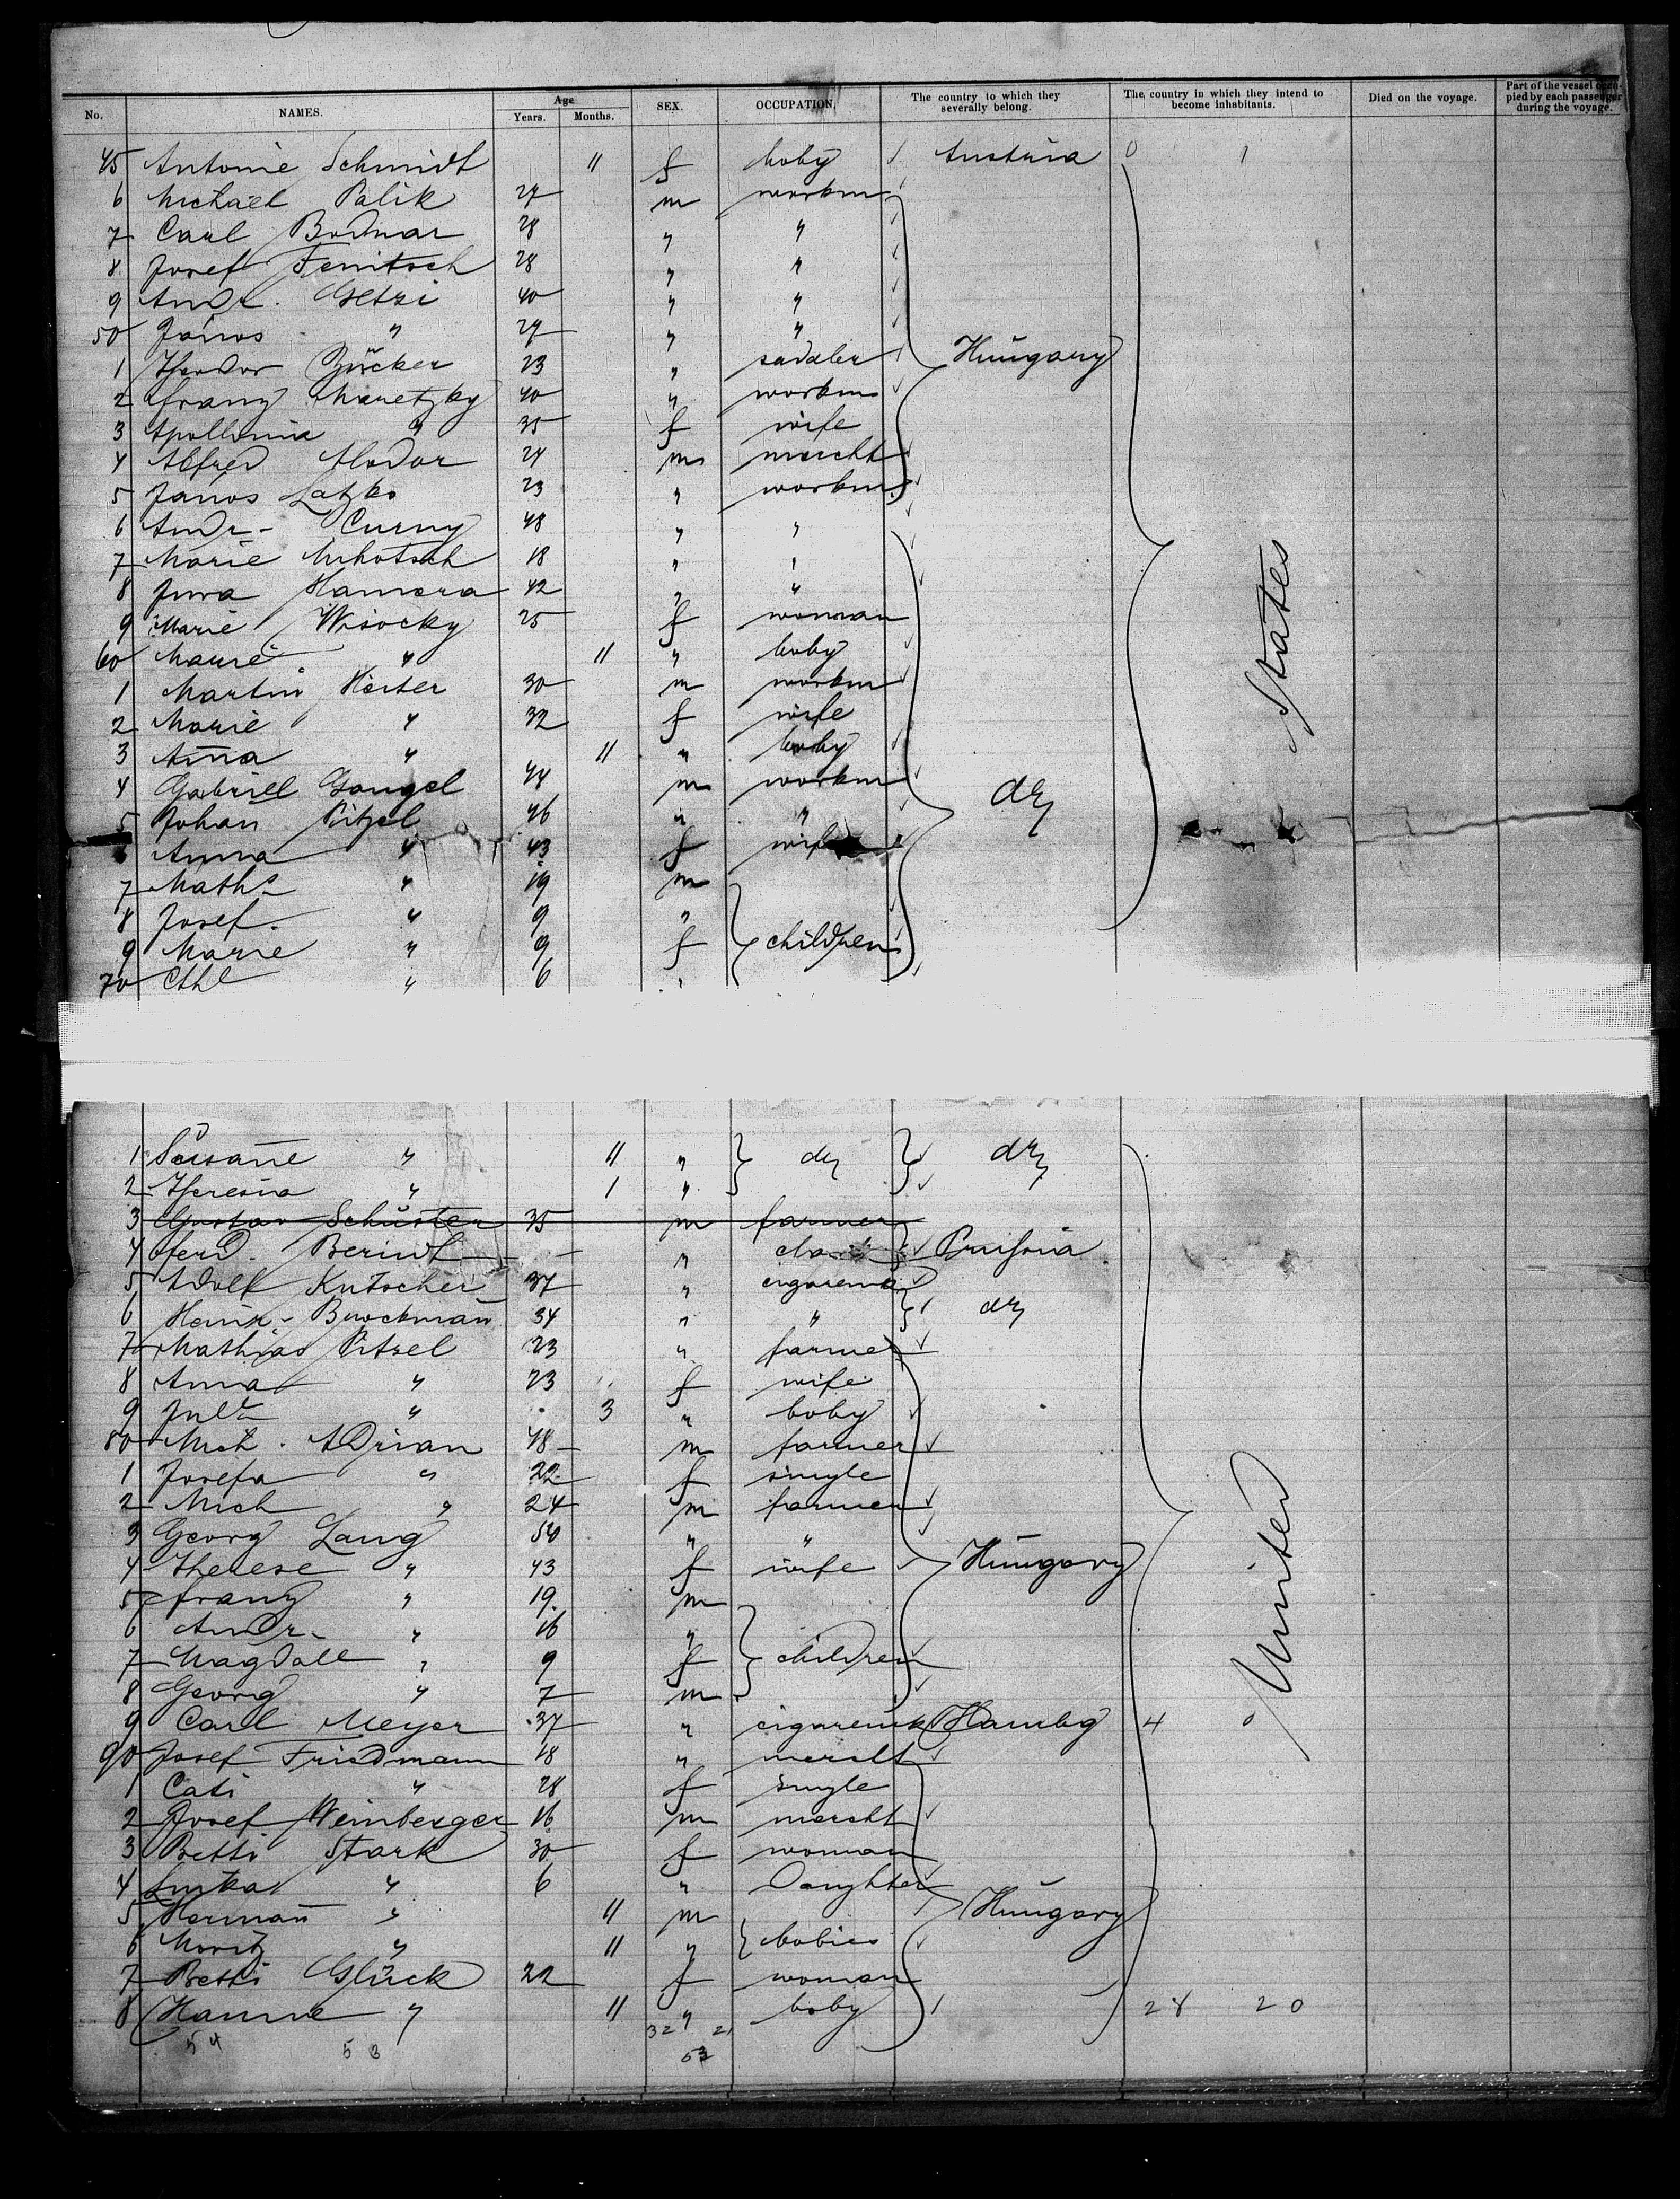 No. NAMES. Age Years. Months. SEX. OCCUPATION. The country to which they severally belong. The country in which they intend to become inhabitants. Died on the voyage. Part of the vessel occupied by each passenger during the voyage.
45 Antonie Schmidt 11 f boby Austria 0 1
6 Michael Palik 27 m workm
7 Carl Bodnar 28 " "
8 Josef Femitsch 28 " "
9 Andr. 40 " "
50 János " 27 " "
1 Theodor Zücker 23 " sadaler Hungary
2 Franz 40 " workm
3 Apollonia " 35 f wife
4 Alfred Modor 24 m mercht
5 János Latzko 23 " workm
6 Andr- Curny 48 " "
7 Marie 18 " "
8 Jura Hamera 42 " "
9 Marie Wisocky 25 f woman
60 Marie " 11 " boby
1 Martin Hörter 30 m workm
2 Marie " 32 f wife
3 Anna " 11 " boby
4 Gabriell Gangel 44 m workm do
5 Johan Pitzel 46 " "
6 Anna " 43 f wife
7 Maths " 19 m
8 Josef " 9 "
9 Marie " 9 f children
70 Cthe " 6 "
States
1 Susanne " 11 " do do
2 Theresia " 1 "
3 Gustav Schuster 35 m farmer
4 Ferd. Berindt - - " Prussia
5 Adolf Kutscher 37 " cigarema
6 Heinr- Buockman 34 " " do
7 Mathias Pitzel 23 " farmer
8 Anna " 23 f wife
9 " 3 " boby
80 Mich. Adrian 48 m farmer
1 Josefa " 22 f single
2 Mich " 24 m farmer
3 Georg Lang 50 " "
4 Therese " 43 f wife Hungary
5 Franz " 19 m
6 Andr- " 16 "
7 Magdale " 9 f children
8 Georg " 7 m
9 Carl Meyer 37 " cigaremk Hambg 4
90 Josef Friedmann 18 " mercht
1 Cati " 28 f single
2 Josef Weinberger 16 m mercht
3 Betti Stark 30 f woman
4 " 6 " Daughter
5 Herman " 11 m Hungary
6 Moritz " 11 " babies
7 Betti Glück 22 f woman
8 Hanne " 11 " boby 28 20
United
54 53 32 21
53